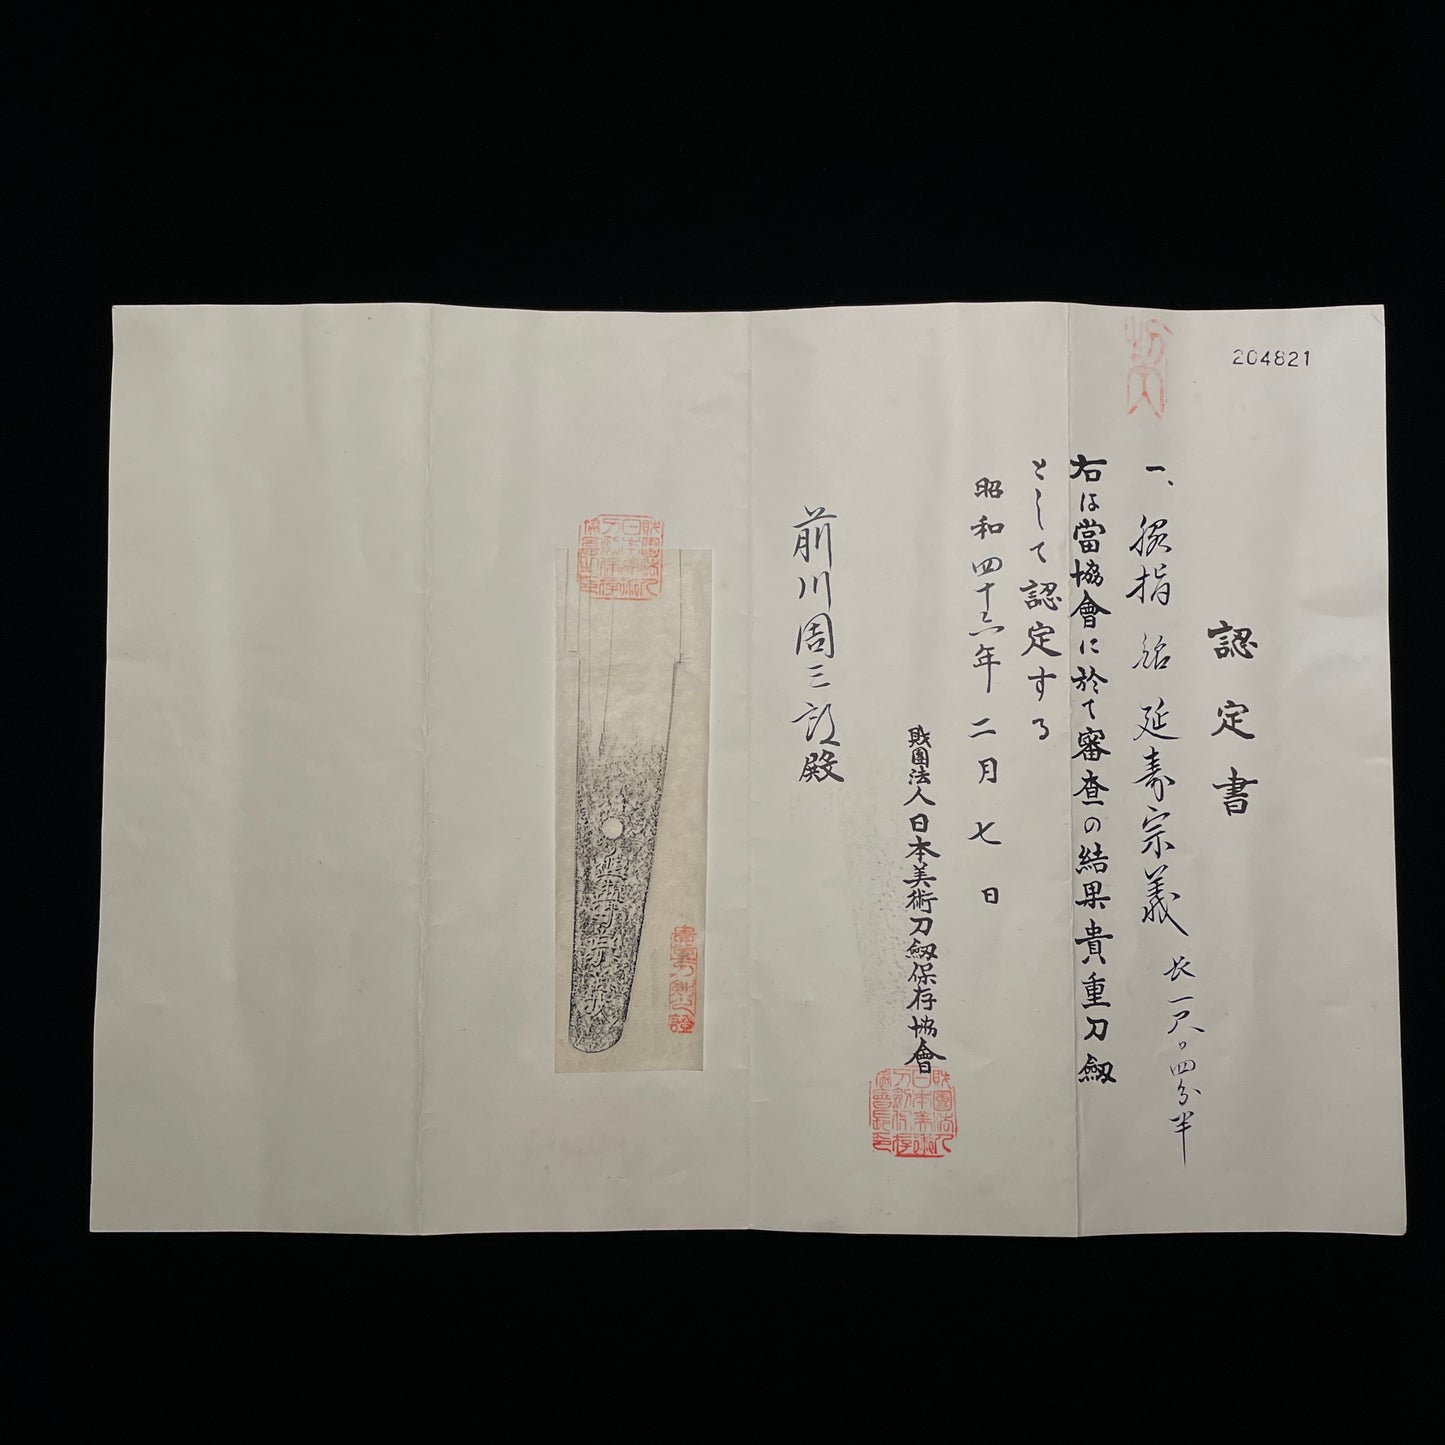 204821
認定書
一、脇指 銘 延寿宗義 長一尺〇四分半
右は當協會に於て審査の結果貴重刀劔
として認定する
昭和四十三年二月七日
財團法人日本美術刀劔保存協會
前川周三郎殿
延寿宗義